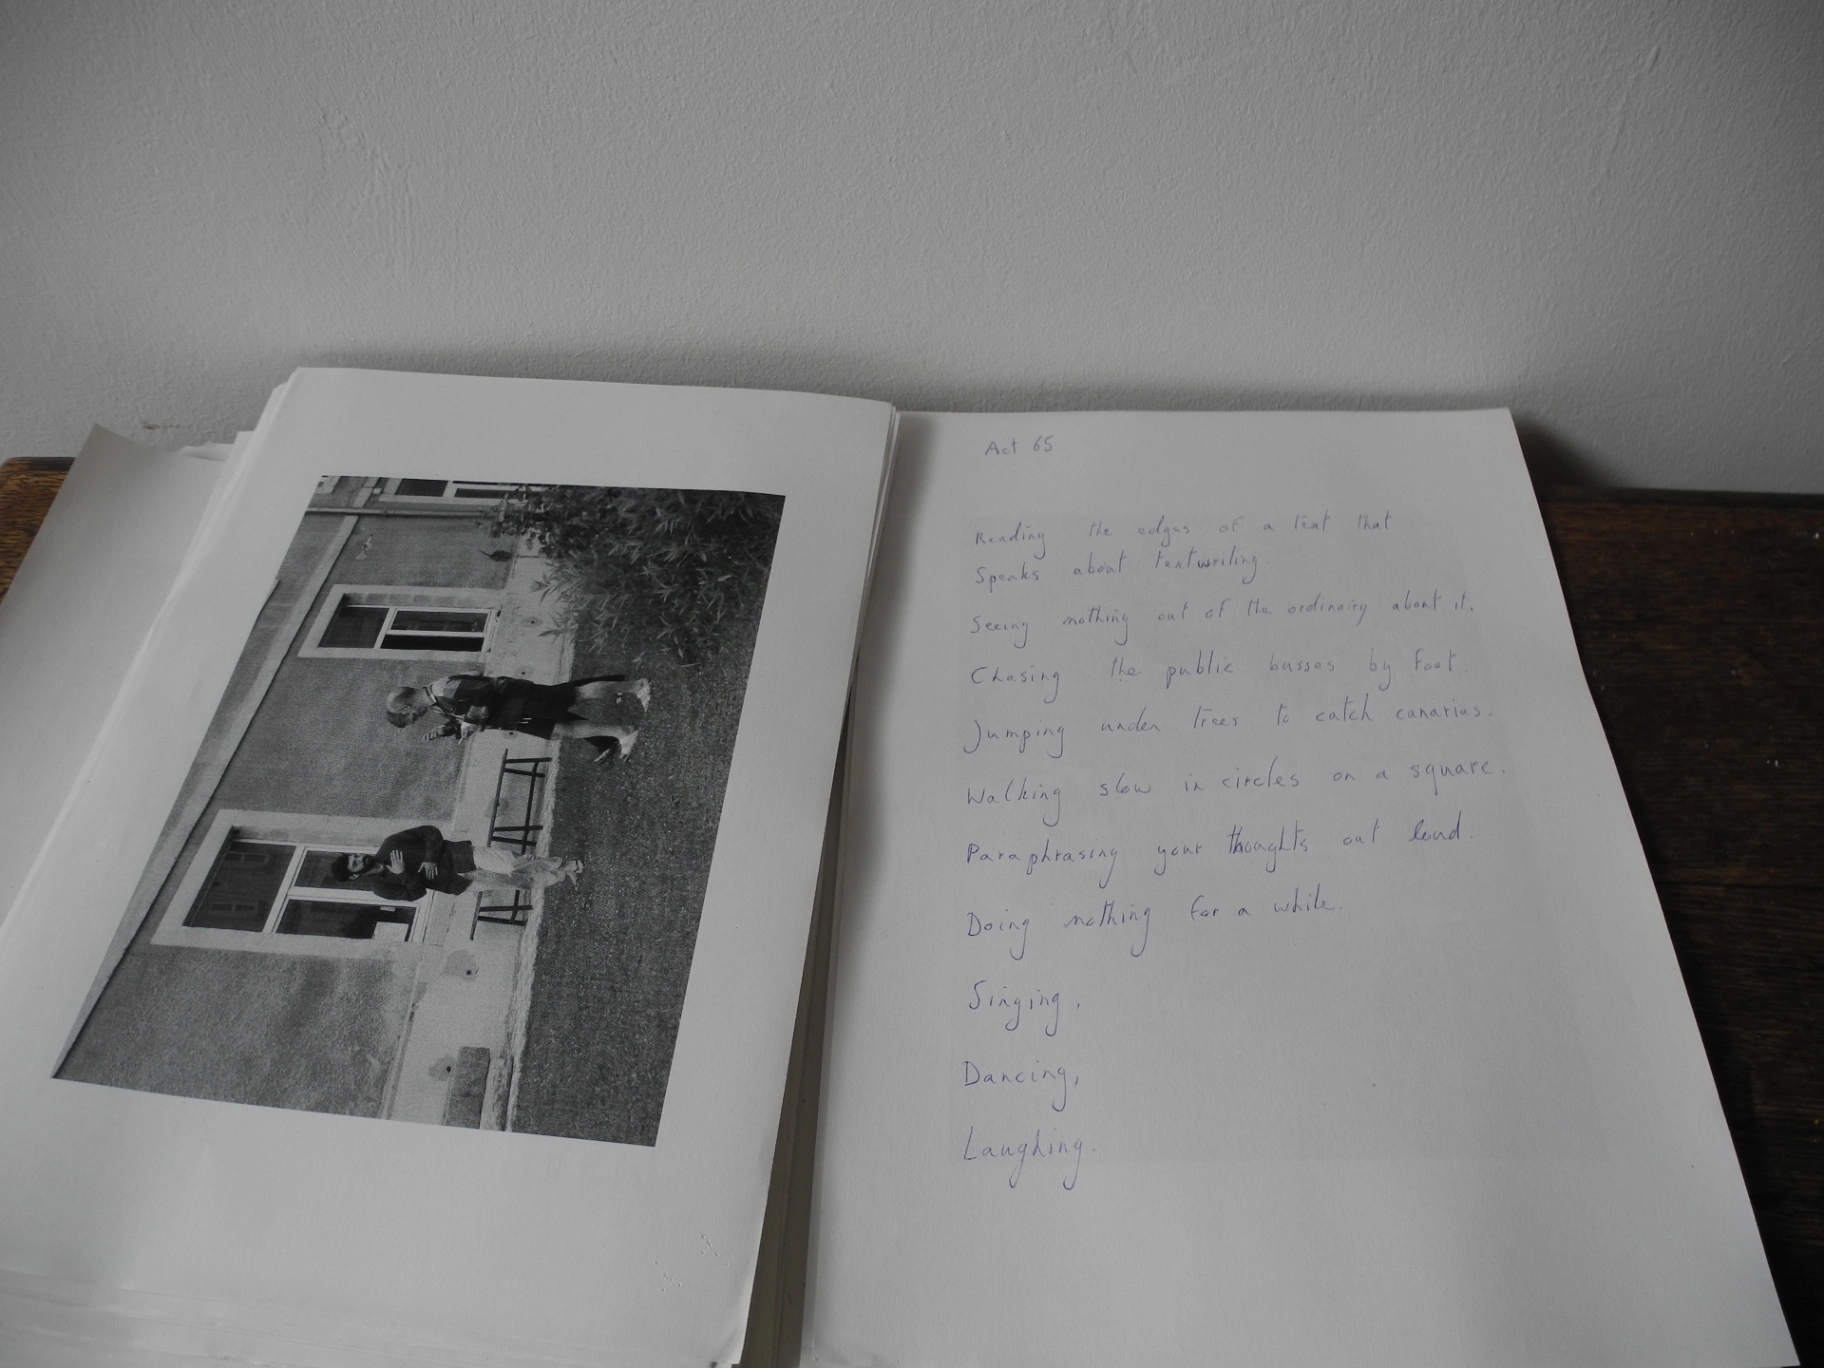 Act 65
Reading the edges of a text that
Speaks about textwriting.
Seeing nothing out of the ordinairy about it.
Chasing the public busses by foot.
Jumping under trees to catch canaries.
Walking slow in circles on a square.
Paraphrasing your thoughts out loud.
Doing nothing for a while.
Singing,
Dancing,
Laughing.